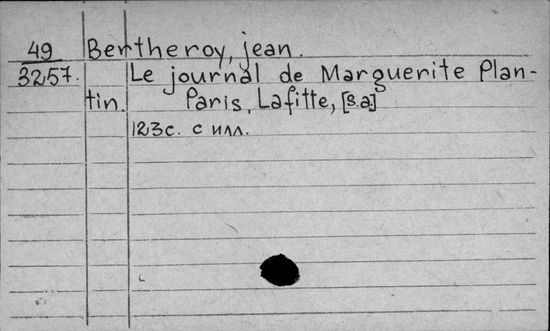 49 Bertheroy, jean.
3257. Le journal de Marguerite Plan-
tin. Paris, Lafitte, [s.a.]
123c. с илл.